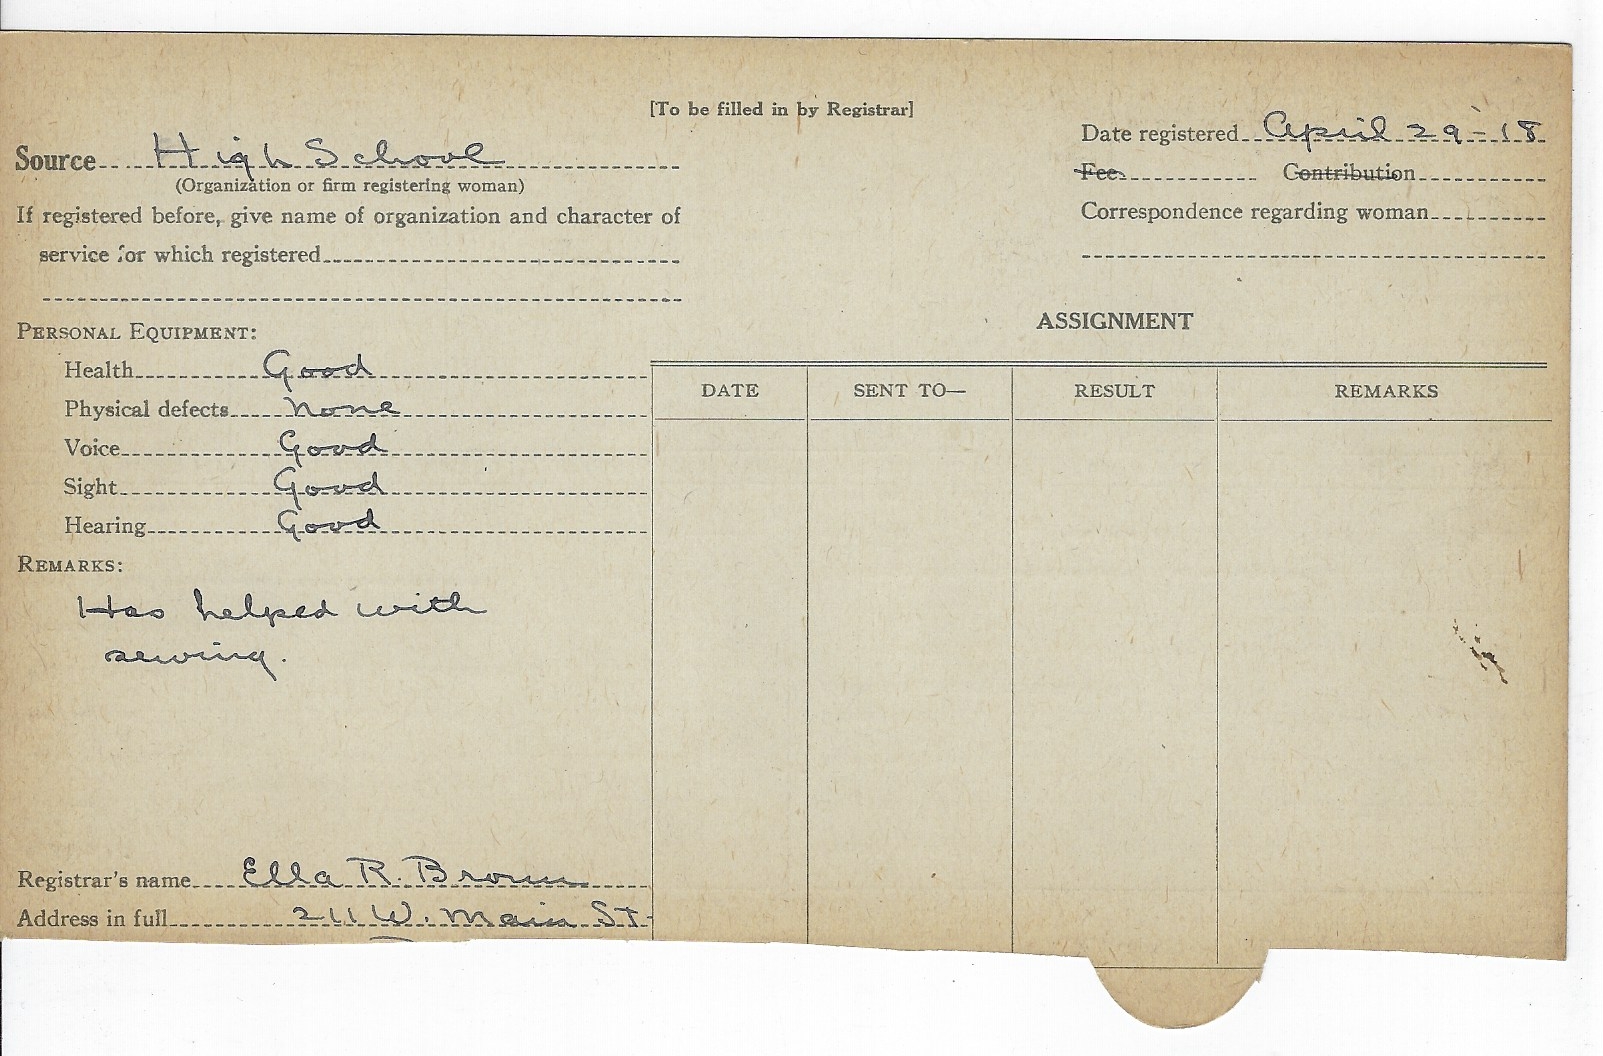 [To be filled in by Registrar]
Source High School
(Organization or firm registering woman)
If registered before, give name of organization and character of
service for which registered
Date registered April 29-18
Fee Contribution
Correspondence regarding woman
PERSONAL EQUIPMENT:
Health Good
Physical defects none
Voice Good
Sight Good
Hearing Good
REMARKS:
Has helped with
sewing.
Registrar's name Ella R. Brown
Address in full 211 W. Main St.
ASSIGNMENT
DATE SENT TO— RESULT REMARKS